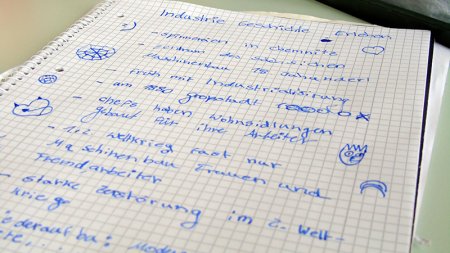 Industrie Geschichte
2)
- spinnereien in chemnitz
- Zentrum des sächsischen
Maschinenbau 18 Jahundert
früh mit Industrialisirung
- am 1880 Großstadt
- chefs haben Wohnsidlungen
gebaut für ihre Arbeiter
- 1+2 Weltkrieg fast nur
Maschinenbau Frauen und
Fremdarbeiter
- starke Zerstörung im 2. Welt-
kriege